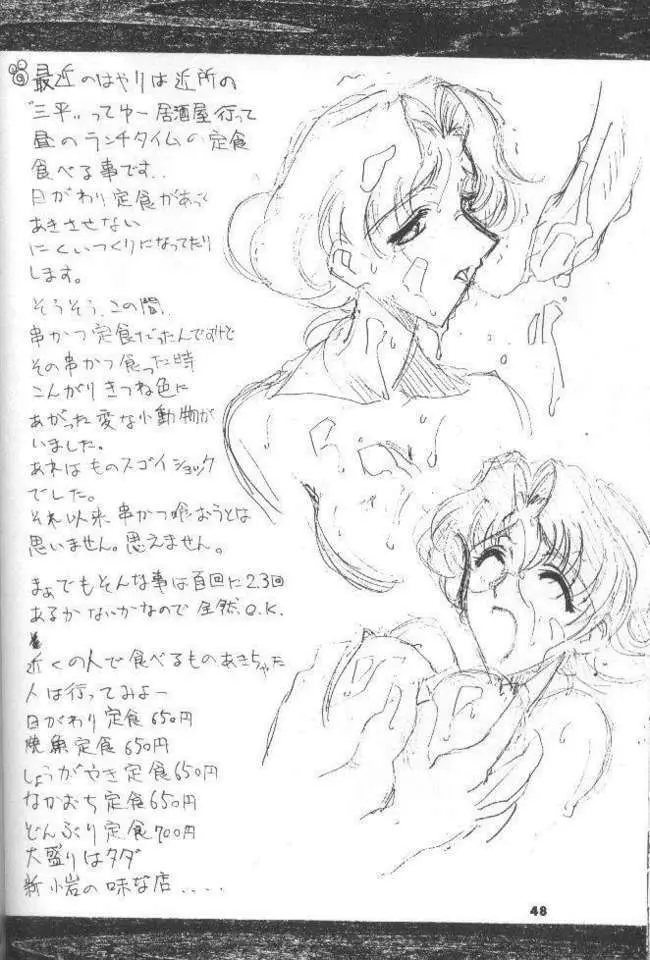 最近のはやりは近所の
"三平"ってゆー居酒屋行って
昼のランチタイムの定食
食べる事です..
日がわり定食があって
あきさせない
にくいつくりになってたり
します。
そうそう、この間、
串かつ定食だったんですけど
その串かつ食った時
こんがりきつね色に
あがった変な小動物が
いました。
あれはものスゴイショック
でした。
それ以来、串かつ喰おうとは
思いません。思えません。
まぁでもそんな事は百回に2.3回
あるかないかなので全然、O.K.
近くの人で食べるものあきちゃた
人は行ってみよー
日がわり定食650円
焼魚定食650円
しょうがやき定食650円
なかおち定食650円
どんぶり定食700円
大盛りはタダ
新小岩の味な店....
48